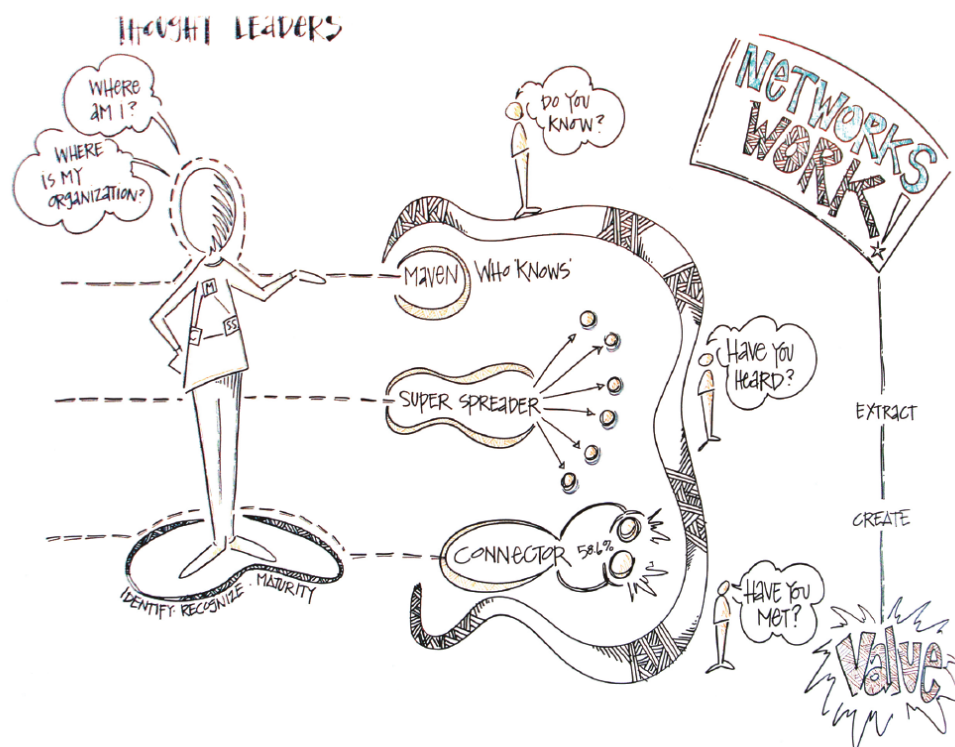 THOUGHT LEADERS
WHERE
AM I?
WHERE
IS MY
ORGANIZATION?
M
C
SS
IDENTIFY · RECOGNIZE · MATURITY
DO YOU
KNOW?
MAVEN WHO 'KNOWS'
SUPER SPREADER
CONNECTOR 58.6%
HAVE YOU
HEARD?
HAVE YOU
MET?
NETWORKS
WORK!
EXTRACT
CREATE
VALUE